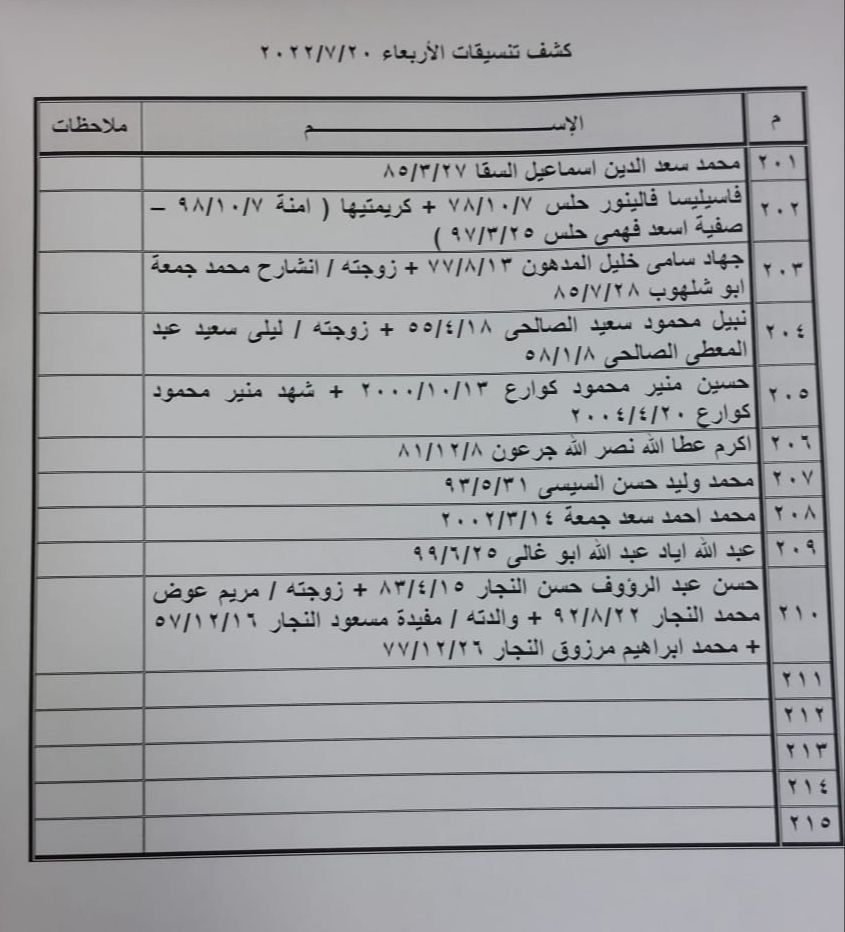 كشف تنسيقات الأربعاء ٢٠٢٢/٧/٢٠
م الإســـــــــــــم ملاحظات
٢٠١ محمد سعد الدين اسماعيل السقا ٨٥/٣/٢٧
٢٠٢ فاسيليسا فالينور حلس ٧٨/١٠/٧ + كريمتيها ( امنة ٩٨/١٠/٧ –
صفية اسعد فهمى حلس ٩٧/٣/٢٥ )
٢٠٣ جهاد سامى خليل المدهون ٧٧/٨/١٣ + زوجته / انشارح محمد جمعة
ابو شلهوب ٨٥/٧/٢٨
٢٠٤ نبيل محمود سعيد الصالحى ٥٥/٤/١٨ + زوجته / ليلى سعيد عبد
المعطى الصالحى ٥٨/١/٨
٢٠٥ حسين منير محمود كوارع ٢٠٠٠/١٠/١٣ + شهد منير محمود
كوارع ٢٠٠٤/٤/٢٠
٢٠٦ اكرم عطا الله نصر الله جرعون ٨١/١٢/٨
٢٠٧ محمد وليد حسن السيسى ٩٣/٥/٣١
٢٠٨ محمد احمد سعد جمعة ٢٠٠٢/٣/١٤
٢٠٩ عبد الله اياد عبد الله ابو غالى ٩٩/٦/٢٥
٢١٠ حسن عبد الرؤوف حسن النجار ٨٣/٤/١٥ + زوجته / مريم عوض
محمد النجار ٩٢/٨/٢٢ + والدته / مفيدة مسعود النجار ٥٧/١٢/١٦
+ محمد ابراهيم مرزوق النجار ٧٧/١٢/٢٦
٢١١
٢١٢
٢١٣
٢١٤
٢١٥